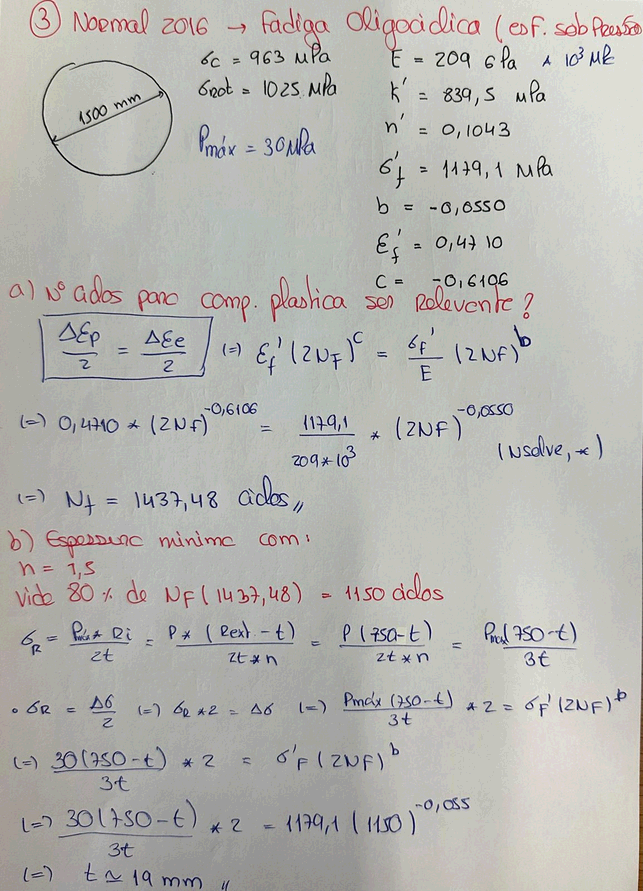 ③ Normal 2016 → Fadiga Oligocíclica (esf. sob Pressão
σc = 963 MPa
E = 209 GPa × 10³ MPa
σrot = 1025 MPa
k' = 839,5 MPa
1500 mm
n' = 0,1043
Pmáx = 30MPa
σ'f = 1179,1 MPa
b = -0,0550
Ɛf' = 0,4710
c = -0,6106
a) Nº ciclos para comp. plastica ser Relevente?
ΔƐp/2 = ΔƐe/2 (=) Ɛf' (2NF)^c = σf'/E (2NF)^b
(=) 0,4710 * (2Nf)^-0,6106 = 1179,1/209*10³ * (2NF)^-0,0550
(Nsolve, x)
(=) Nf = 1437,48 ciclos,,
b) Espessura minima com:
n = 1,5
Vida 80 % de NF (1437,48) = 1150 ciclos
σR = Pmáx * Ri/2t = P * (Rext - t)/2t * n = P (750-t)/2t * n = Pmax (750-t)/3t
• σR = Δσ/2 (=) σR * 2 = Δσ (=) Pmáx (750-t)/3t * 2 = σF' (2NF)^b
(=) 30(750-t)/3t * 2 = σ'F (2NF)^b
(=) 30(750-t)/3t * 2 = 1179,1 (1150)^-0,055
(=) t ≃ 19 mm ,,